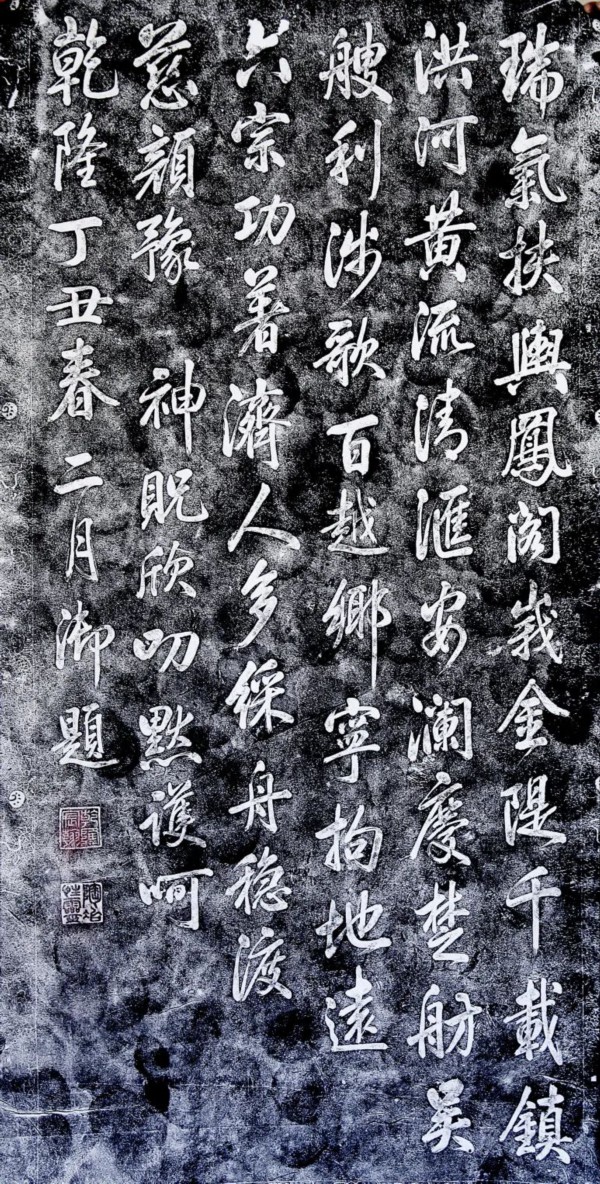 瑞氣扶輿鳳閣峩金隄千載鎮
洪河黃流清滙安瀾慶楚舫吳
艘利涉歌百越鄉寧拘地遠
六宗功著濟人多綵舟穩渡
慈顔豫 神貺欣叨默護呵
乾隆丁丑春二月御題
乾隆宸翰